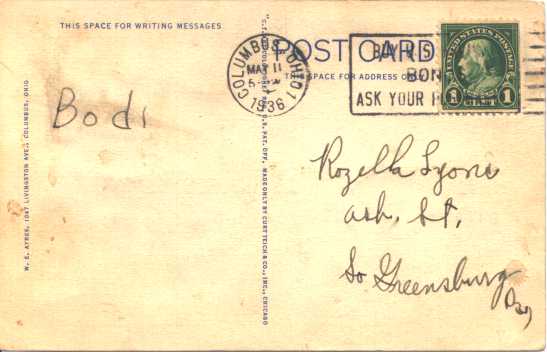 THIS SPACE FOR WRITING MESSAGES
POST CARD
THIS SPACE FOR ADDRESS
COLUMBUS, OHIO 1
MAY 11
1936
BUY
BON
ASK YOUR P
UNITED STATES POSTAGE
1 1
Bodi
W. E. AYRES, 1047 LIVINGSTON AVE., COLUMBUS, OHIO
REG. U.S. PAT. OFF. MADE ONLY BY CURT TEICH & CO., INC., CHICAGO
Rozella Lyons
Ash. St.
So Greensburg
Pa,